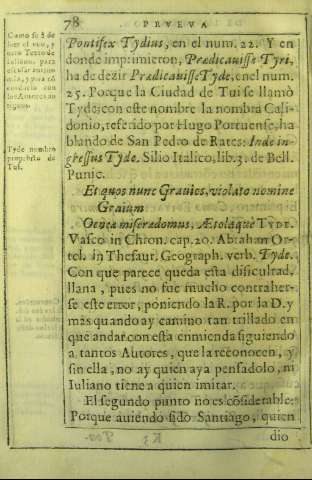 78 PRVEVA
Pontifex Tydius, en el num. 22. Y en
donde imprimieron, Prædicauisse Tyri,
ha de dezir Prædicauisse Tyde, en el num.
25. Porque la Ciudad de Tui se llamò
Tyde; con este nombre la nombra Cali-
donio, referido por Hugo Portuense, ha
blando de San Pedro de Rates: Inde in-
gressus Tyde. Silio Italico, lib. 3. de Bell.
Punic.
Et quos nunc Grauios, violato nomine
Graium
Oenea miserædomus, Ætolaque TYDE.
Vasco in Chron. cap. 20. Abrahan Or-
tel. in Thesaur. Geograph. verb. Tyde.
Con que parece queda esta dificultad
llana, pues no fue mucho contraher-
se este error, poniendo la R. por la D. y
mas quando ay camino tan trillado en
que andar con esta enmienda siguiendo
a tantos Autores, que la reconocen, y
sin ella, no ay quien aya pensadolo, ni
Iuliano tiene a quien imitar.
El segundo punto no es cõsiderable:
Porque auiendo sido Santiago, quien
dio
Como se à de
leer el
Texto de
Iuliano, para
Tyde nombre
proprio de
Tui.